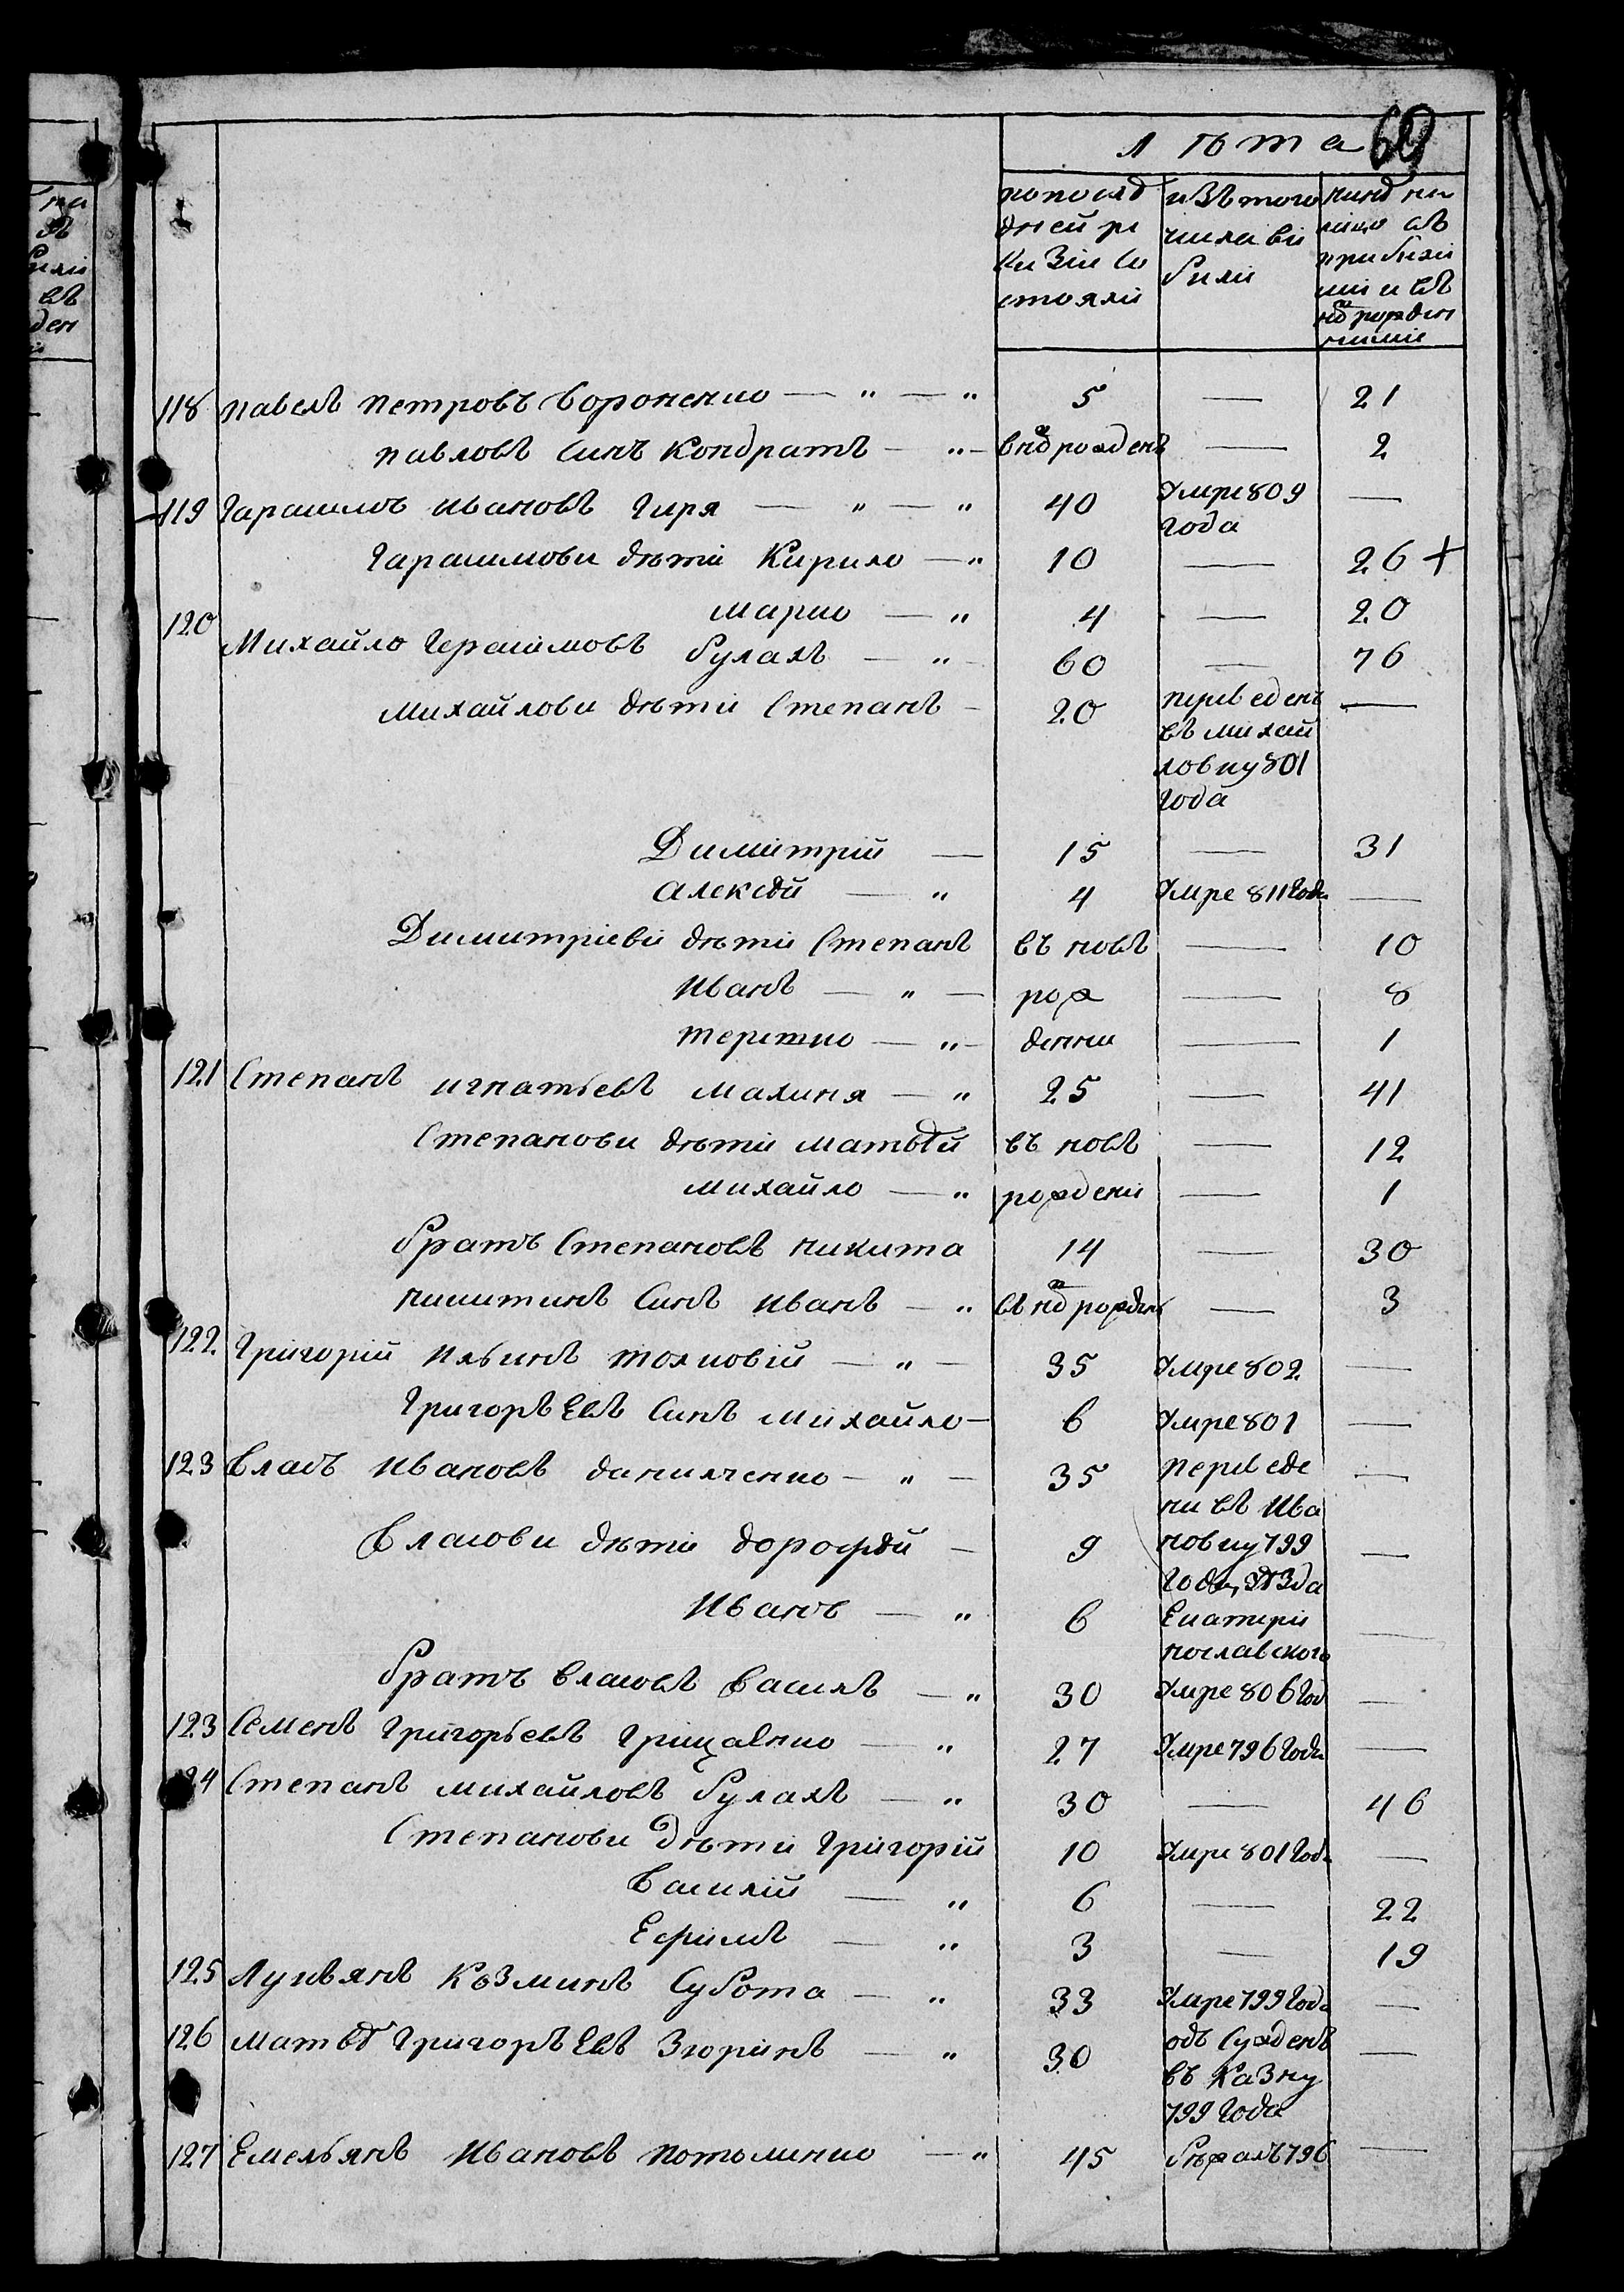 69
лѣта
по послѣ дней ре визіи со стояли
изъ того числа ви били
нинѣ на лицо съ прибили ми и внѣ рожден ними
118 павелъ петровъ вороненко — " — " 5 — 21
павловъ синъ кондратъ — " — внѣ рожденъ — 2
119 гарасимъ ивановъ гиря — " — " 40 умре 809 года —
гарасимови дѣти кирило — " 10 — 26 +
марко — " 4 — 20
120 Михайло герасимовъ булахъ — " — 60 — 76
михайлови дѣти степанъ — 20 переведенъ въ михай ловку 801 года —
Димитрій — 15 — 31
алексѣй — " 4 умре 811 года —
Димитріеви дѣти степанъ въ новѣ — 10
иванъ — " — рож — 8
терешко — " — денни — 1
121 степанъ игнатьевъ махиня — " 25 — 41
степанови дѣти матвѣй въ новѣ — 12
михайло — " рождени — 1
братъ степановъ никита 14 — 30
никитинъ синъ иванъ — " внѣ рожденъ — 3
122 григорій ильинъ толковій — " — 35 умре 802 —
григорьевъ синъ михайло — 6 умре 801 —
123 власъ ивановъ данилченко — " — 35 переведе ни въ ива новку 799 года уѣзда Екатери нославского —
власови дѣти дорофѣй — 9 —
иванъ — " 6 —
братъ власовъ василь — " 30 умре 806 год —
123 семенъ григорьевъ грищенко — " 27 умре 796 года —
124 степанъ михайловъ булахъ — " 30 — 46
степанови дѣти григорій 10 умре 801 года —
василій — " 6 — 22
Ефимъ — " 3 — 19
125 лукьянъ козминъ субота — " 33 умре 799 года —
126 матвѣ григорьевъ зюринъ — " 30 одъ сужденъ въ казну 799 года —
127 Емельянъ ивановъ — " 45 бѣжалъ 796 —